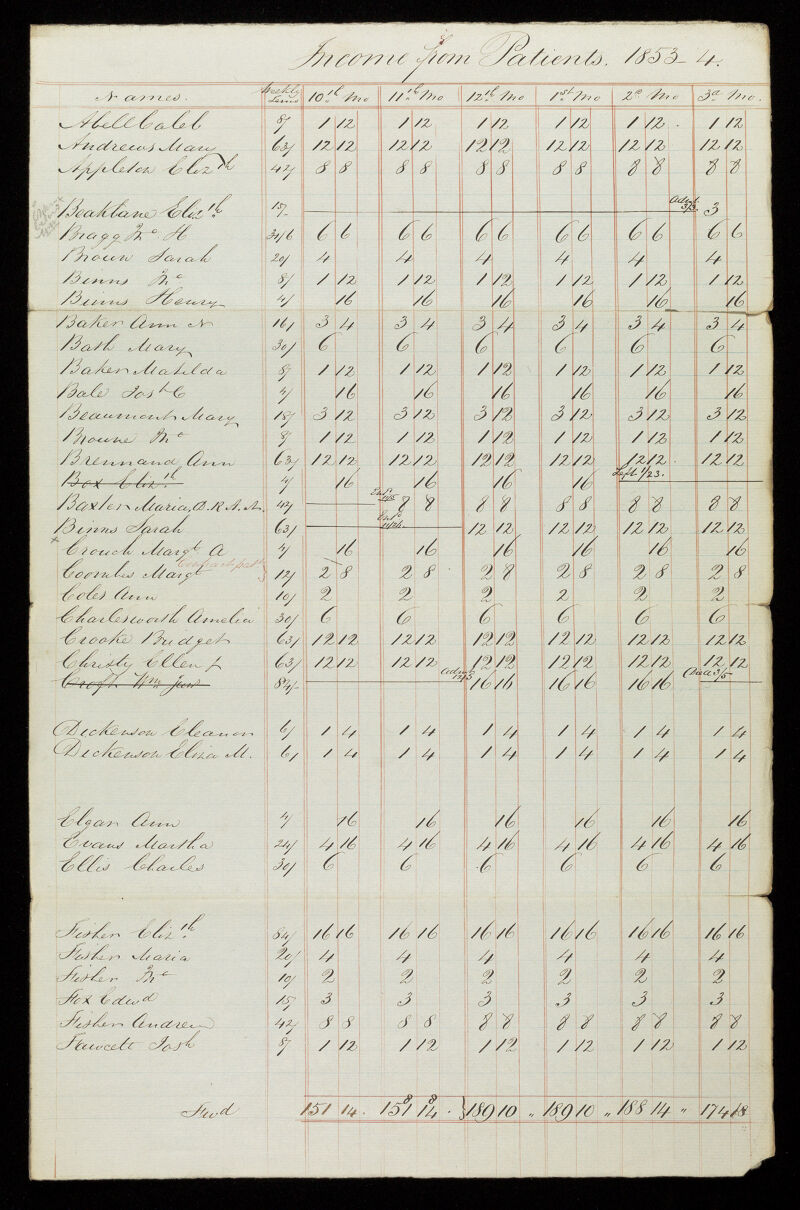 Income from Patients. 1853–4.
Names. Weekly Terms 10th Mo 11th Mo 12th Mo 1st Mo 2d Mo 3d Mo.
Abell Caleb 8/ 1 12 1 12 1 12 1 12 1 12 . 1 12
Andrews Mary 63/ 12 12 12 12 12 12 12 12 12 12 12 12
Appleton Elizth 42/ 8 8 8 8 8 8 8 8 8 8 8 8
Beakbane Elizth 15/- Admd 3/3. 3
Bragg Jno H 31/6 6 6 6 6 6 6 6 6 6 6 6 6
Brown Sarah 20/ 4 4 4 4 4 4
Binns Jno 8/ 1 12 1 12 1 12 1 12 1 12 1 12
Binns Henry 4/ 16 16 16 16 16 16
Baker Ann N 16/ 3 4 3 4 3 4 3 4 3 4 3 4
Bath Mary 30/ 6 6 6 6 6 6
Baker Matilda 8/ 1 12 1 12 1 12 1 12 1 12 1 12
Bale Josh C 4/ 16 16 16 16 16 16
Beaumont Mary 18/ 3 12 3 12 3 12 3 12 3 12 3 12
Browne Jno 8/ 1 12 1 12 1 12 1 12 1 12 1 12
Brennand Ann 63/ 12 12 12 12 12 12 12 12 12 12 . 12 12
Box Elizth 4/ 16 16 16 16 Left 1/23.
Baxter Maria, 42/ 8 8 8 8 8 8 8 8 8 8
Binns Sarah 63/ 12 12 12 12 12 12 12 12
x Crouch Margt A 4/ 16 16 16 16 16 16
Coombs Margt 12/ 2 8 2 8 2 8 2 8 2 8 2 8
Coles Ann 10/ 2 2 2 2 2 2
Charlesworth Amelia 30/ 6 6 6 6 6 6
Crooke Bridget 63/ 12 12 12 12 12 12 12 12 12 12 12 12
Christy Ellen f 63/ 12 12 12 12 12 12 12 12 12 12 12 12
Croft Wm Junr 84/- Admd 12/3 16 16 16 16 16 16 3/5
Dickenson Eleanor 6/ 1 4 1 4 1 4 1 4 1 4 1 4
Dickenson Eliza M. 6/ 1 4 1 4 1 4 1 4 1 4 1 4
Elgar Ann 4/ 16 16 16 16 16 16
Evans Martha 24/ 4 16 4 16 4 16 4 16 4 16 4 16
Ellis Charles 30/ 6 6 6 6 6 6
Fisher Elizth 84/ 16 16 16 16 16 16 16 16 16 16 16 16
Fisher Maria 20/ 4 4 4 4 4 4
Fisher Jno 10/ 2 2 2 2 2 2
Fox Edwd 15/ 3 3 3 3 3 3
Fisher Andrew 42/ 8 8 8 8 8 8 8 8 8 8 8 8
Fawcett Josh 8/ 1 12 1 12 1 12 1 12 1 12 1 12
Fwd 151 14 . 158 14 . 189 10 " 189 10 " 188 14 " 174 18